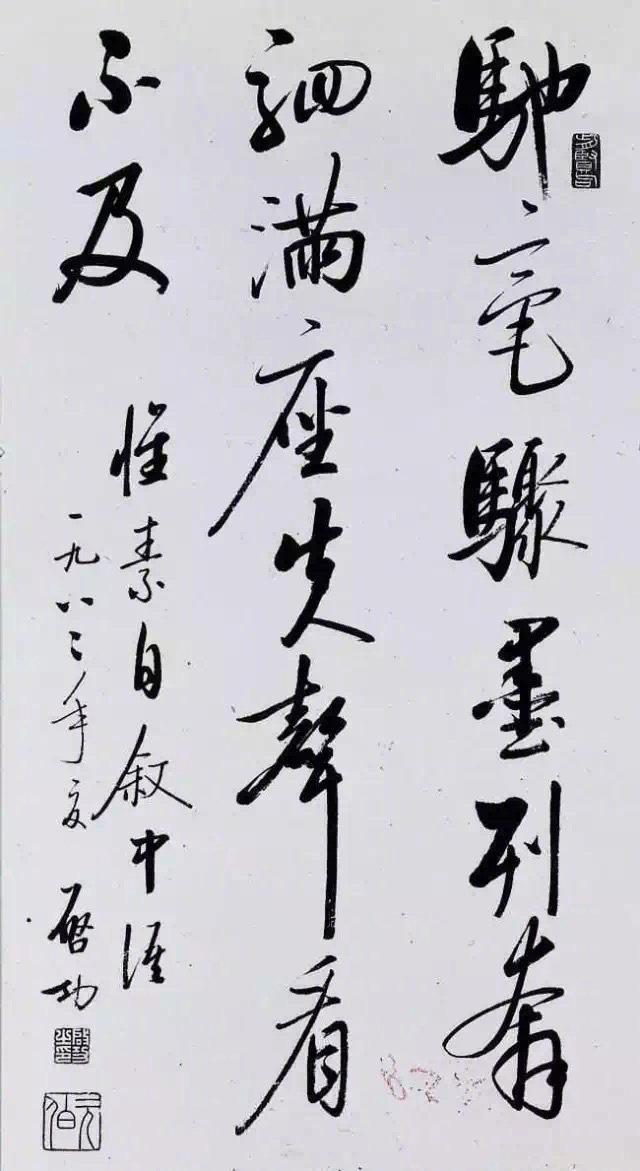 馳毫驟墨列奔
駟滿座失聲看
不及
懷素自敘中語
一九八二年夏
啓功